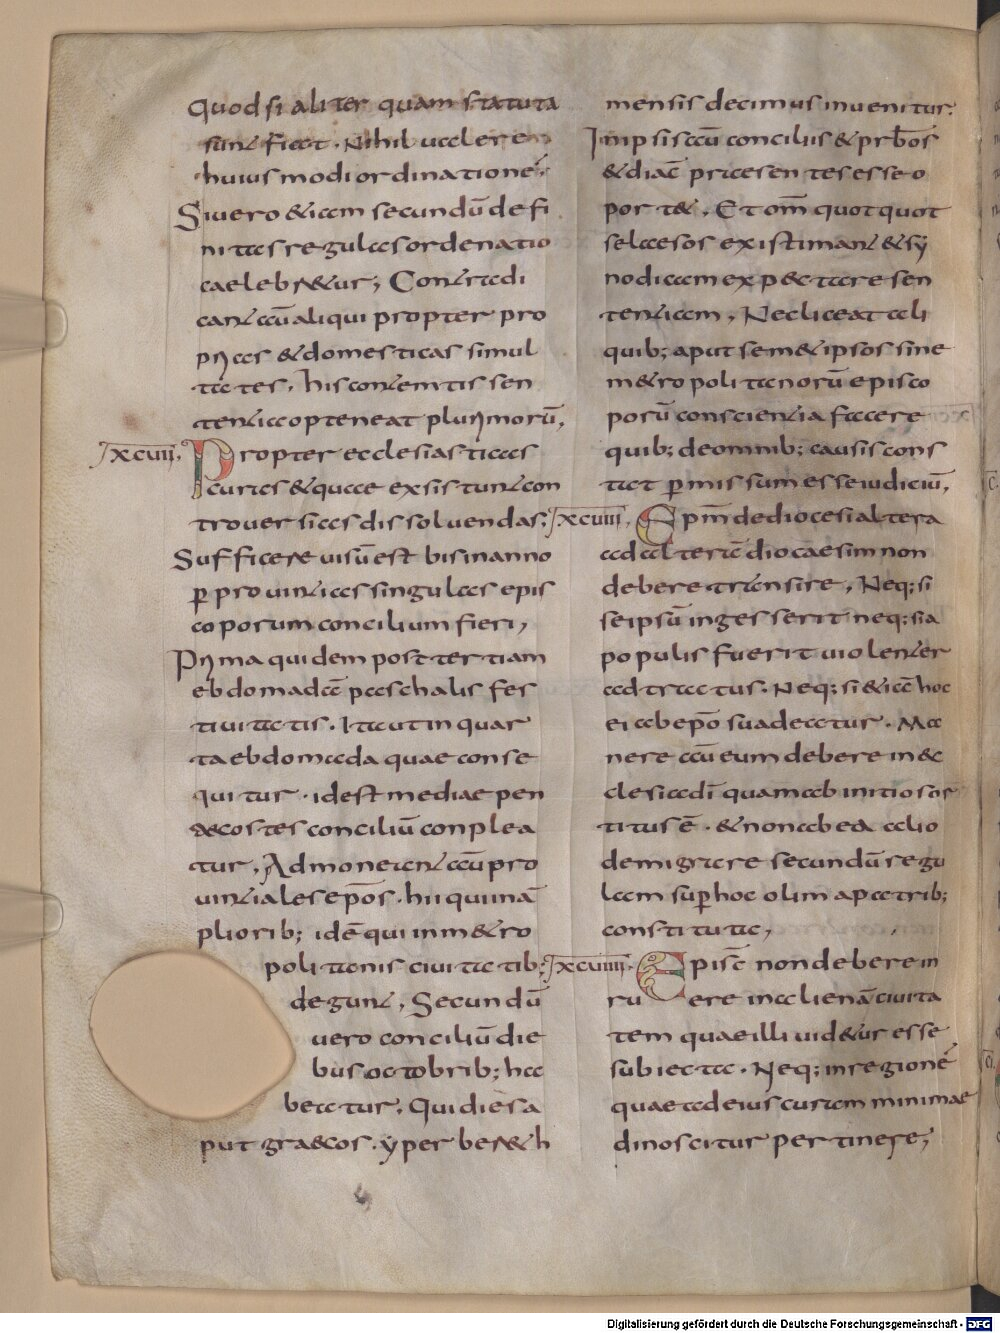 Quod si aliter quam statuta
sunt fiat . Nihil ualere
huiusmodi ordinatione
Si uero & iam secundū defi
nitas regulas ordenatio
caelebr&ur; Contradi
cant aūt aliqui propter pro
prias & domesticas simul
tates, his contemtis sen
tentia opteneat plurimorū,
xcvii, Propter ecclesiasticas
curas & quae exsistunt con
trouersias dissoluendas;
Sufficere uisū est bis in anno
ꝑ prouintias singulas epis
coporum concilium fieri,
Prima quidem post tertiam
ebdomadā paschalis fes
tiuitatis. Ita ut in quar
ta ebdomada quae conse
quitur . id est mediae pen
decostes conciliū conplea
tur, Admoneant aūt pro
uintiales ep̄os . hii qui in ā
pliorib; idē qui in m&ro
politanis ciuitatib;
degunt, Secundū
uero conciliū die
bus octobrib; ha
beatur, Qui dies a
put graecos . yperber&h
mensis decimus inuenitur.
In ipsis aūt conciliis & prb̄os
& diac̄ praesentes esse o
port&, Et om̄ quotquot
se laesos existimant & sy
nodicam exp&tare sen
tentiam, Nec liceat ali
quib; aput sem&ipsos sine
m&ropolitanorū episco
porū conscientia facere
quib; de omnib; causis cons
tat ꝑmissum esse iudiciū,
xcviii, Ep̄m de diocesi altera
ad alterā diocaesim non
debere transire, Neq; si
se ipsū ingesserit neq; si a
populis fuerit uiolenter
adtractus . Neq; si &iā hoc
ei ab ep̄o suadeatur . Ma
nere aūt eum debere in ec
clesia dī quam ab initio sor
titus ē . & non ab ea alio
demigrare secundū regu
lam suꝑ hoc olim a patrib;
constituta,
xcviiii. Episc̄ non debere in
ruere in alienā ciuita
tem quae illi uid&ur esse
subiecta . Neq; in regionē
quae ad eius curam minimae
dinoscitur pertinere;
Digitalisierung gefördert durch die Deutsche Forschungsgemeinschaft - DFG